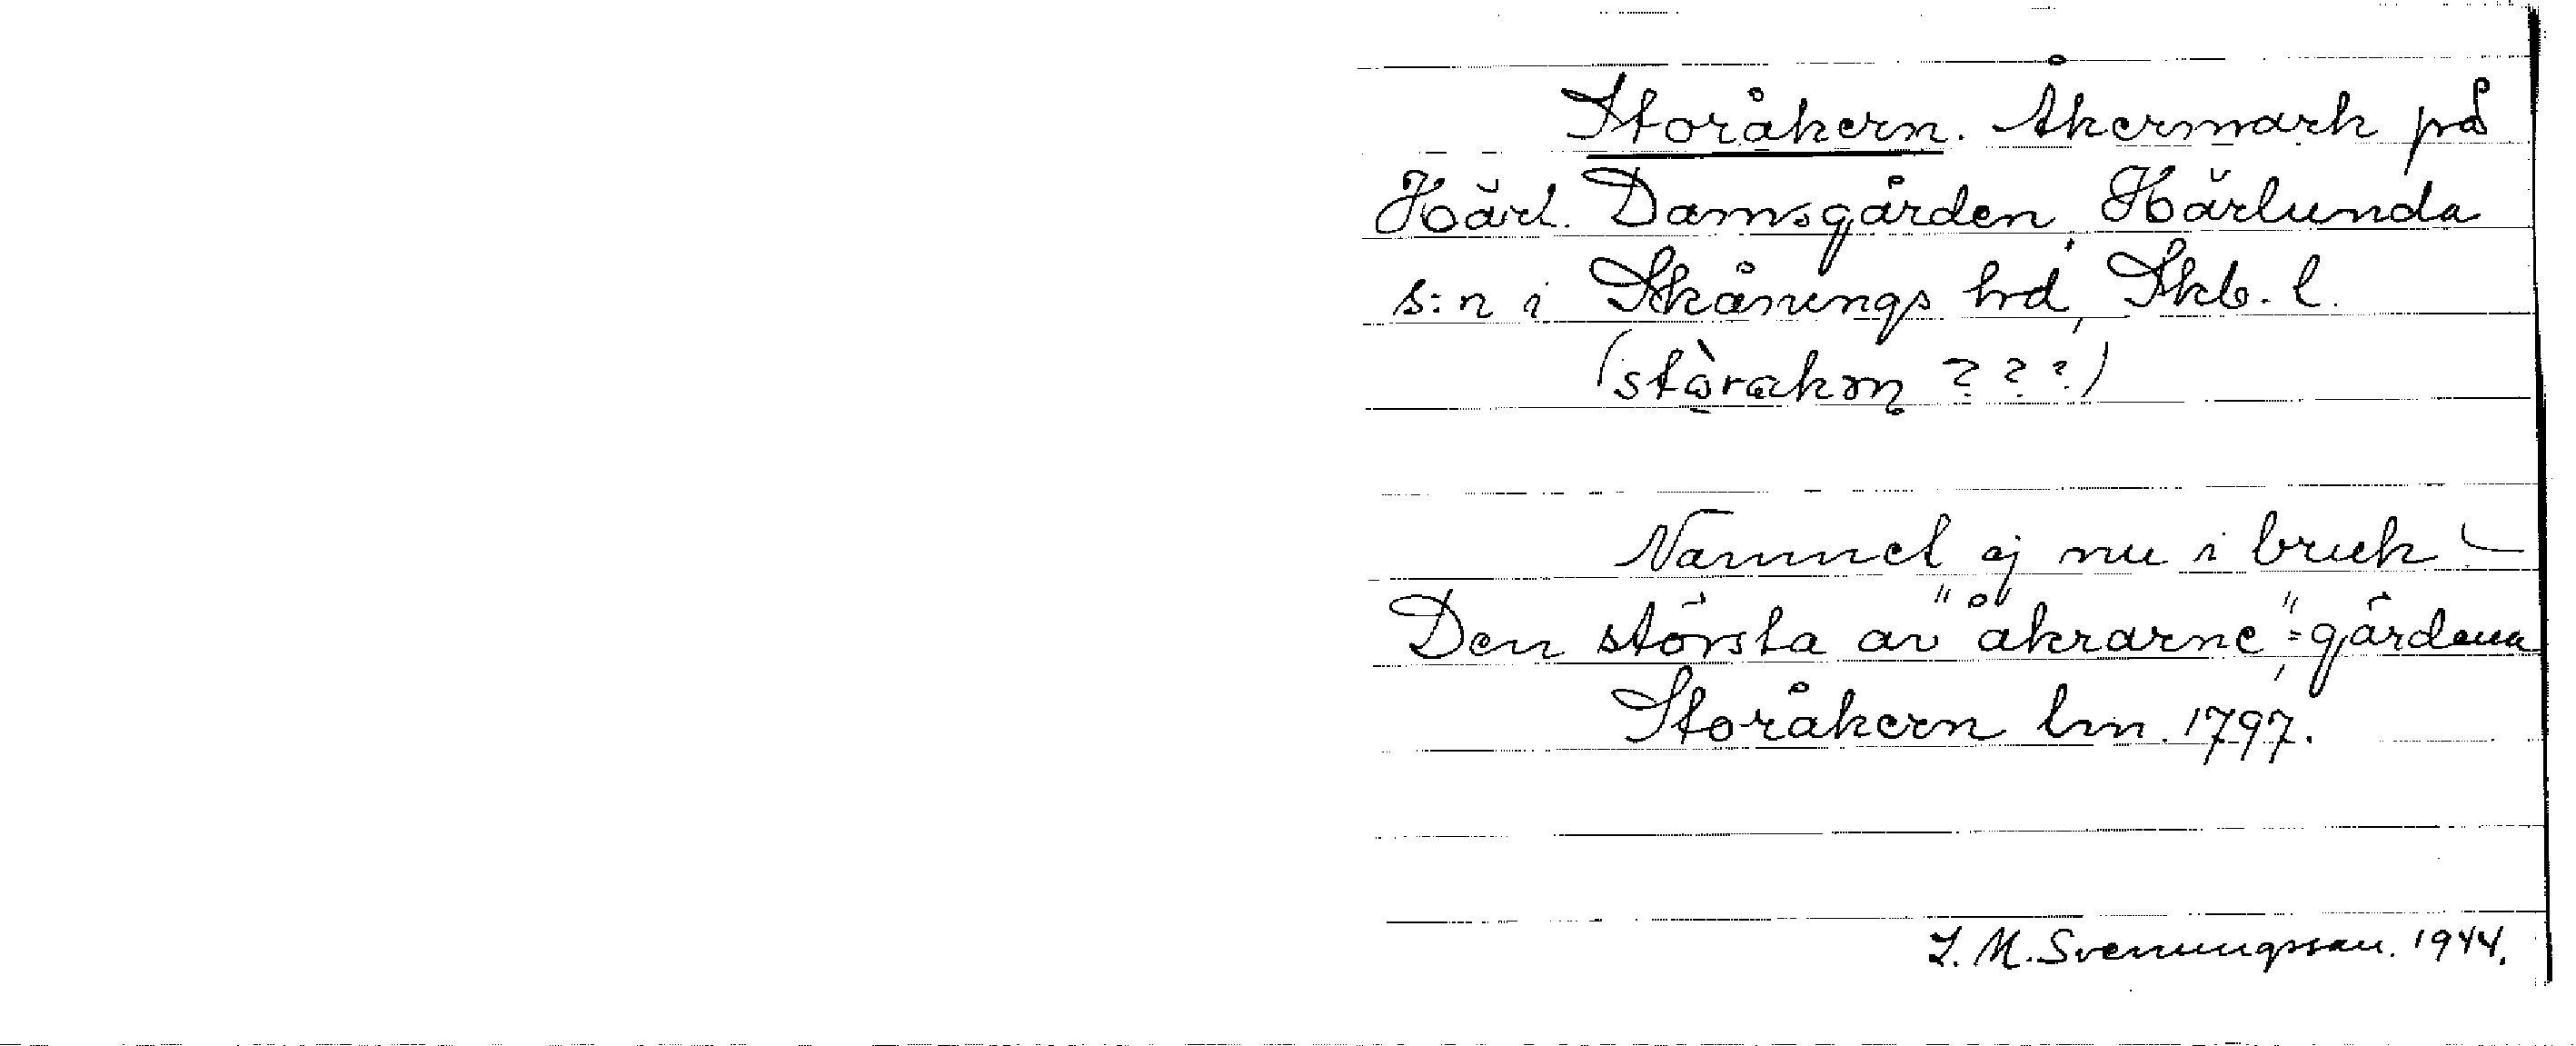 Storåkern. Åkermark på
Härl. Damsgården, Härlunda
s:n i Skånings hd, Skb. l.
(stòrakɷn ? ? ?)
Namnet ej nu i bruk –
Den största av "åkrarne", = gärdena
Storåkern lm. 1797.
J. M. Svenungsson. 1944.